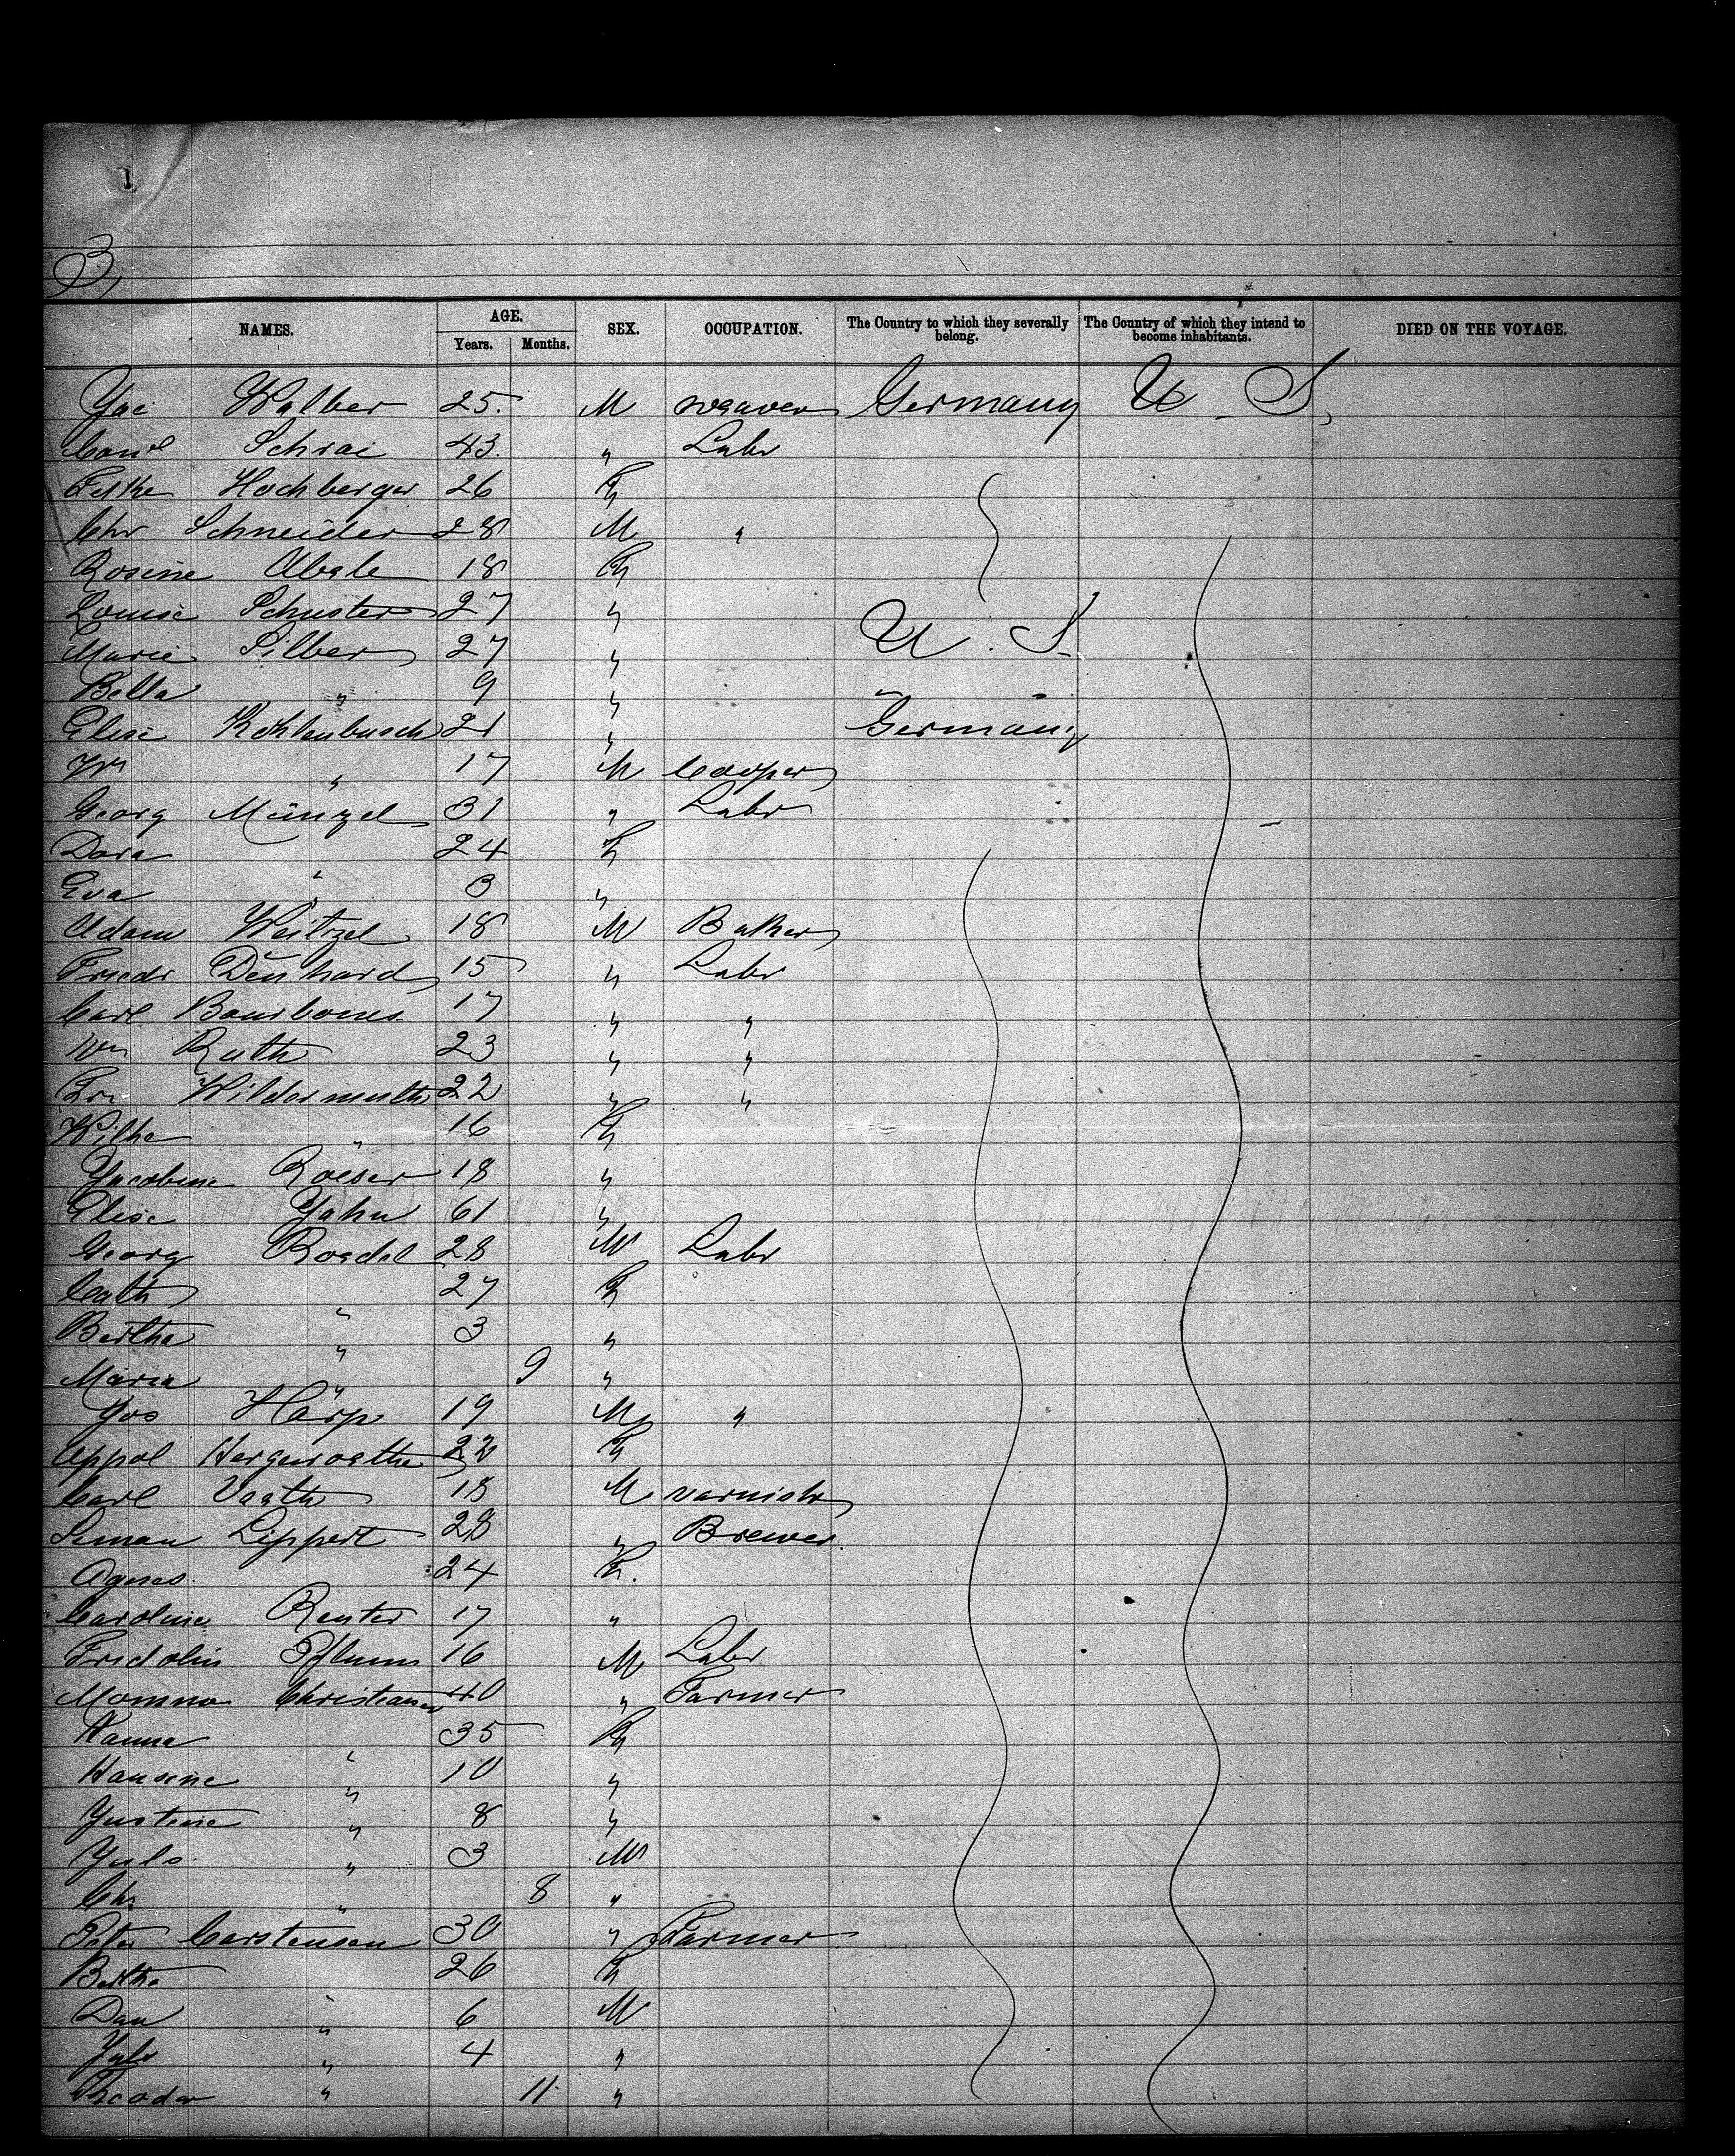 3
NAMES. AGE. SEX. OCCUPATION. The Country to which they severally belong. The Country of which they intend to become inhabitants. DIED ON THE VOYAGE.
Years. Months.
Jac Walber 25. M weaver Germany U. S.
Schrai 43. " Labr
Hochberger 26 F
Chr Schneider 28 M "
Rosine Abele 18 F
Louise Schuster 27 "
Marie Silber 27 " U. S.
Bella " 9 "
Elise Kohlenbusch 21 " Germany
Wm " 17 M Cooper
Georg Münzel 31 " Labr
Dora " 24 F
Eva " 3 "
Adam Weitzel 18 M Baker
Friedr Denhard 15 " Labr
Carl 17 " "
Wm Ruth 23 " "
Fr. Wildermuth 22 " "
Wilhe " 16 F
Jacobine Roeser 18 "
Elise Jahn 61 "
Georg Roedel 28 M Labr
Cath " 27 F
Bertha " 3 "
Maria " 9 "
Jos Härp 19 M "
Appol 22 F
Carl Vaath 18 M varnishr
Lippert 28 " Brewer.
Agnes. 24 F.
Caroline Reuter 17 "
Fridolin Pflumm 16 M Labr
Momme Christiansen 40 " Farmer
Hanna " 35 F
Hansine " 10 "
Justine " 8 "
Juls. " 3 M
Chr. " 8 "
Peter Carstensen 30 " Farmer
Bertha " 26 F
Dan " 6 M
Juls " 4 "
Theodor " 11. "